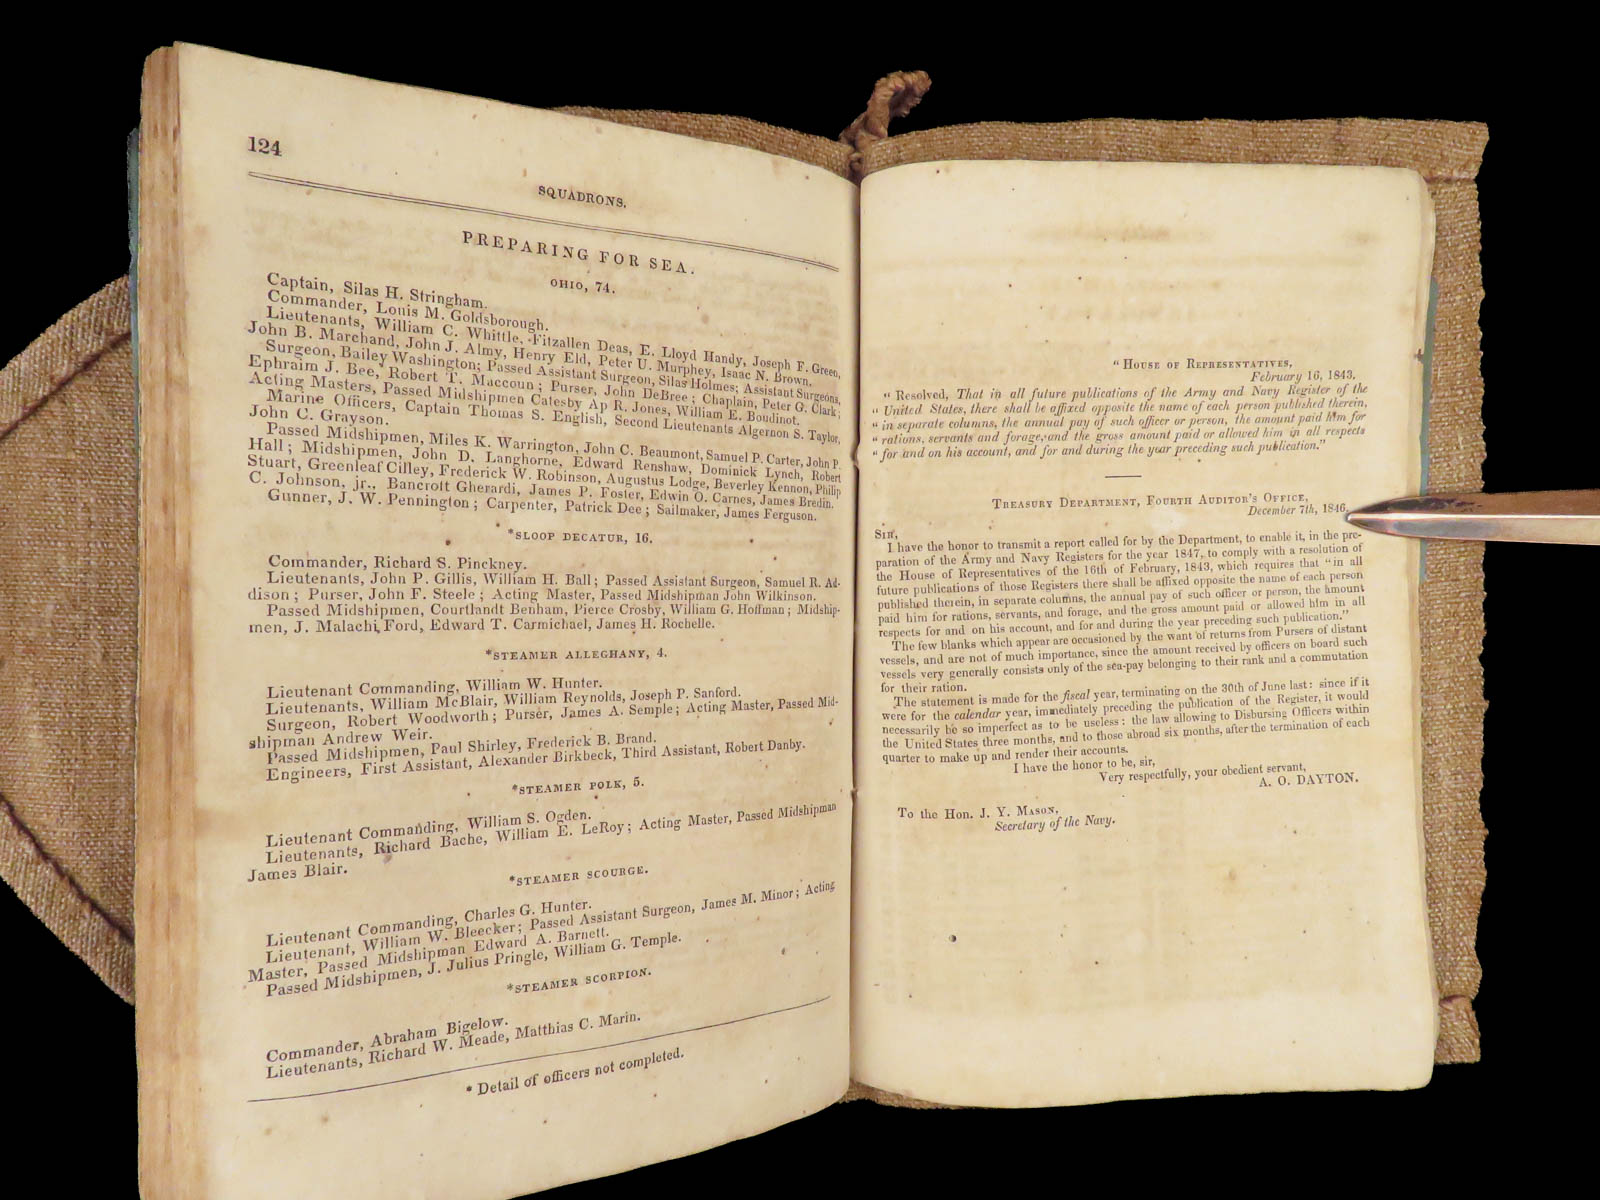 124
SQUADRONS.
PREPARING FOR SEA.
OHIO, 74.
Captain, Silas H. Stringham.
Commander, Louis M. Goldsborough.
Lieutenants, William C. Whittle, Fitzallen Deas, E. Lloyd Handy, Joseph F. Green,
John B. Marchand, John J. Almy, Henry Eld, Peter U. Murphey, Isaac N. Brown.
Surgeon, Bailey Washington; Passed Assistant Surgeon, Silas Holmes; Assistant Surgeons,
Ephraim J. Bee, Robert T. Maccoun; Purser, John DeBree; Chaplain, Peter G. Clark;
Acting Masters, Passed Midshipmen Catesby Ap R. Jones, William E. Boudinot.
Marine Officers, Captain Thomas S. English, Second Lieutenants Algernon S. Taylor,
John C. Grayson.
Passed Midshipmen, Miles K. Warrington, John C. Beaumont, Samuel P. Carter, John P.
Hall; Midshipmen, John D. Langhorne, Edward Renshaw, Dominick Lynch, Robert
Stuart, Greenleaf Cilley, Frederick W. Robinson, Augustus Lodge, Beverley Kennon, Philip
C. Johnson, jr., Bancroft Gherardi, James P. Foster, Edwin O. Carnes, James Bredin.
Gunner, J. W. Pennington; Carpenter, Patrick Dee; Sailmaker, James Ferguson.
*SLOOP DECATUR, 16.
Commander, Richard S. Pinckney.
Lieutenants, John P. Gillis, William H. Ball; Passed Assistant Surgeon, Samuel R. Ad-
dison; Purser, John F. Steele; Acting Master, Passed Midshipman John Wilkinson.
Passed Midshipmen, Courtlandt Benham, Pierce Crosby, William G. Hoffman; Midship-
men, J. Malachi Ford, Edward T. Carmichael, James H. Rochelle.
*STEAMER ALLEGHANY, 4.
Lieutenant Commanding, William W. Hunter.
Lieutenants, William McBlair, William Reynolds, Joseph P. Sanford.
Surgeon, Robert Woodworth; Purser, James A. Semple; Acting Master, Passed Mid-
shipman Andrew Weir.
Passed Midshipmen, Paul Shirley, Frederick B. Brand.
Engineers, First Assistant, Alexander Birkbeck, Third Assistant, Robert Danby.
*STEAMER POLK, 5.
Lieutenant Commanding, William S. Ogden.
Lieutenants, Richard Bache, William E. LeRoy; Acting Master, Passed Midshipman
James Blair.
*STEAMER SCOURGE.
Lieutenant Commanding, Charles G. Hunter.
Lieutenant, William W. Bleecker; Passed Assistant Surgeon, James M. Minor; Acting
Master, Passed Midshipman Edward A. Barnett.
Passed Midshipmen, J. Julius Pringle, William G. Temple.
*STEAMER SCORPION.
Commander, Abraham Bigelow.
Lieutenants, Richard W. Meade, Matthias C. Marin.
* Detail of officers not completed.
"House of Representatives,
February 16, 1843.
" Resolved, That in all future publications of the Army and Navy Register of the
" United States, there shall be affixed opposite the name of each person published therein,
" in separate columns, the annual pay of such officer or person, the amount paid him for
" rations, servants and forage, and the gross amount paid or allowed him in all respects
" for and on his account, and for and during the year preceding such publication."
Treasury Department, Fourth Auditor's Office,
December 7th, 1846.
Sir,
I have the honor to transmit a report called for by the Department, to enable it, in the pre-
paration of the Army and Navy Registers for the year 1847, to comply with a resolution of
the House of Representatives of the 16th of February, 1843, which requires that "in all
future publications of those Registers there shall be affixed opposite the name of each person
published therein, in separate columns, the annual pay of such officer or person, the amount
paid him for rations, servants, and forage, and the gross amount paid or allowed him in all
respects for and on his account, and for and during the year preceding such publication."
The few blanks which appear are occasioned by the want of returns from Pursers of distant
vessels, and are not of much importance, since the amount received by officers on board such
vessels very generally consists only of the sea-pay belonging to their rank and a commutation
for their ration.
The statement is made for the fiscal year, terminating on the 30th of June last: since if it
were for the calendar year, immediately preceding the publication of the Register, it would
necessarily be so imperfect as to be useless: the law allowing to Disbursing Officers within
the United States three months, and to those abroad six months, after the termination of each
quarter to make up and render their accounts.
I have the honor to be, sir,
Very respectfully, your obedient servant,
A. O. DAYTON.
To the Hon. J. Y. Mason,
Secretary of the Navy.